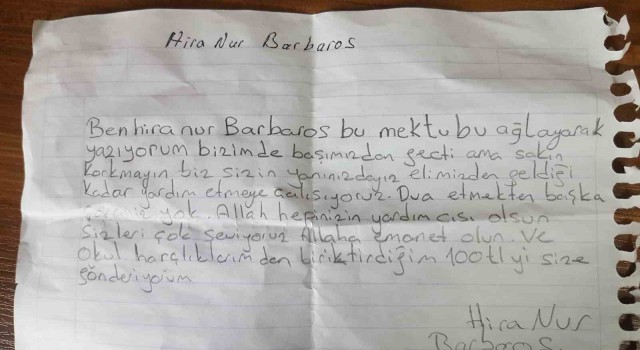 Hira Nur Barbaros
Ben hira nur Barbaros bu mektubu ağlayarak
yazıyorum bizimde başımızdan geçti ama sakın
korkmayın biz sizin yanınızdayız elimizden geldiği
kadar yardım etmeye çalışıyoruz. Dua etmekten başka
yok. Allah hepinizin yardımcısı olsun
sizleri çok seviyoruz Allaha emanet olun. Ve
okul harçlıklarımden biriktirdiğim 100tl yi size
gönderiyorum
Hira Nur
Barbaros.